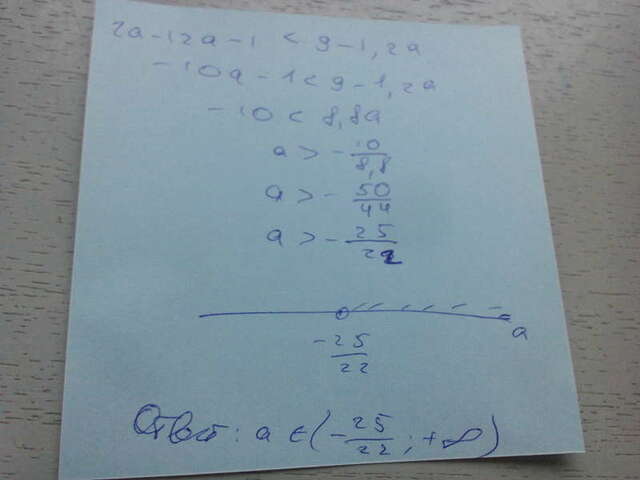 2a-12a-1 < 9-1,2a
-10a-1<9-1,2a
-10 < 8,8a
a > - 10/8,8
a > - 50/44
a > - 25/22
-25/22
a
Ответ: a ∈ (-25/22; +∞)